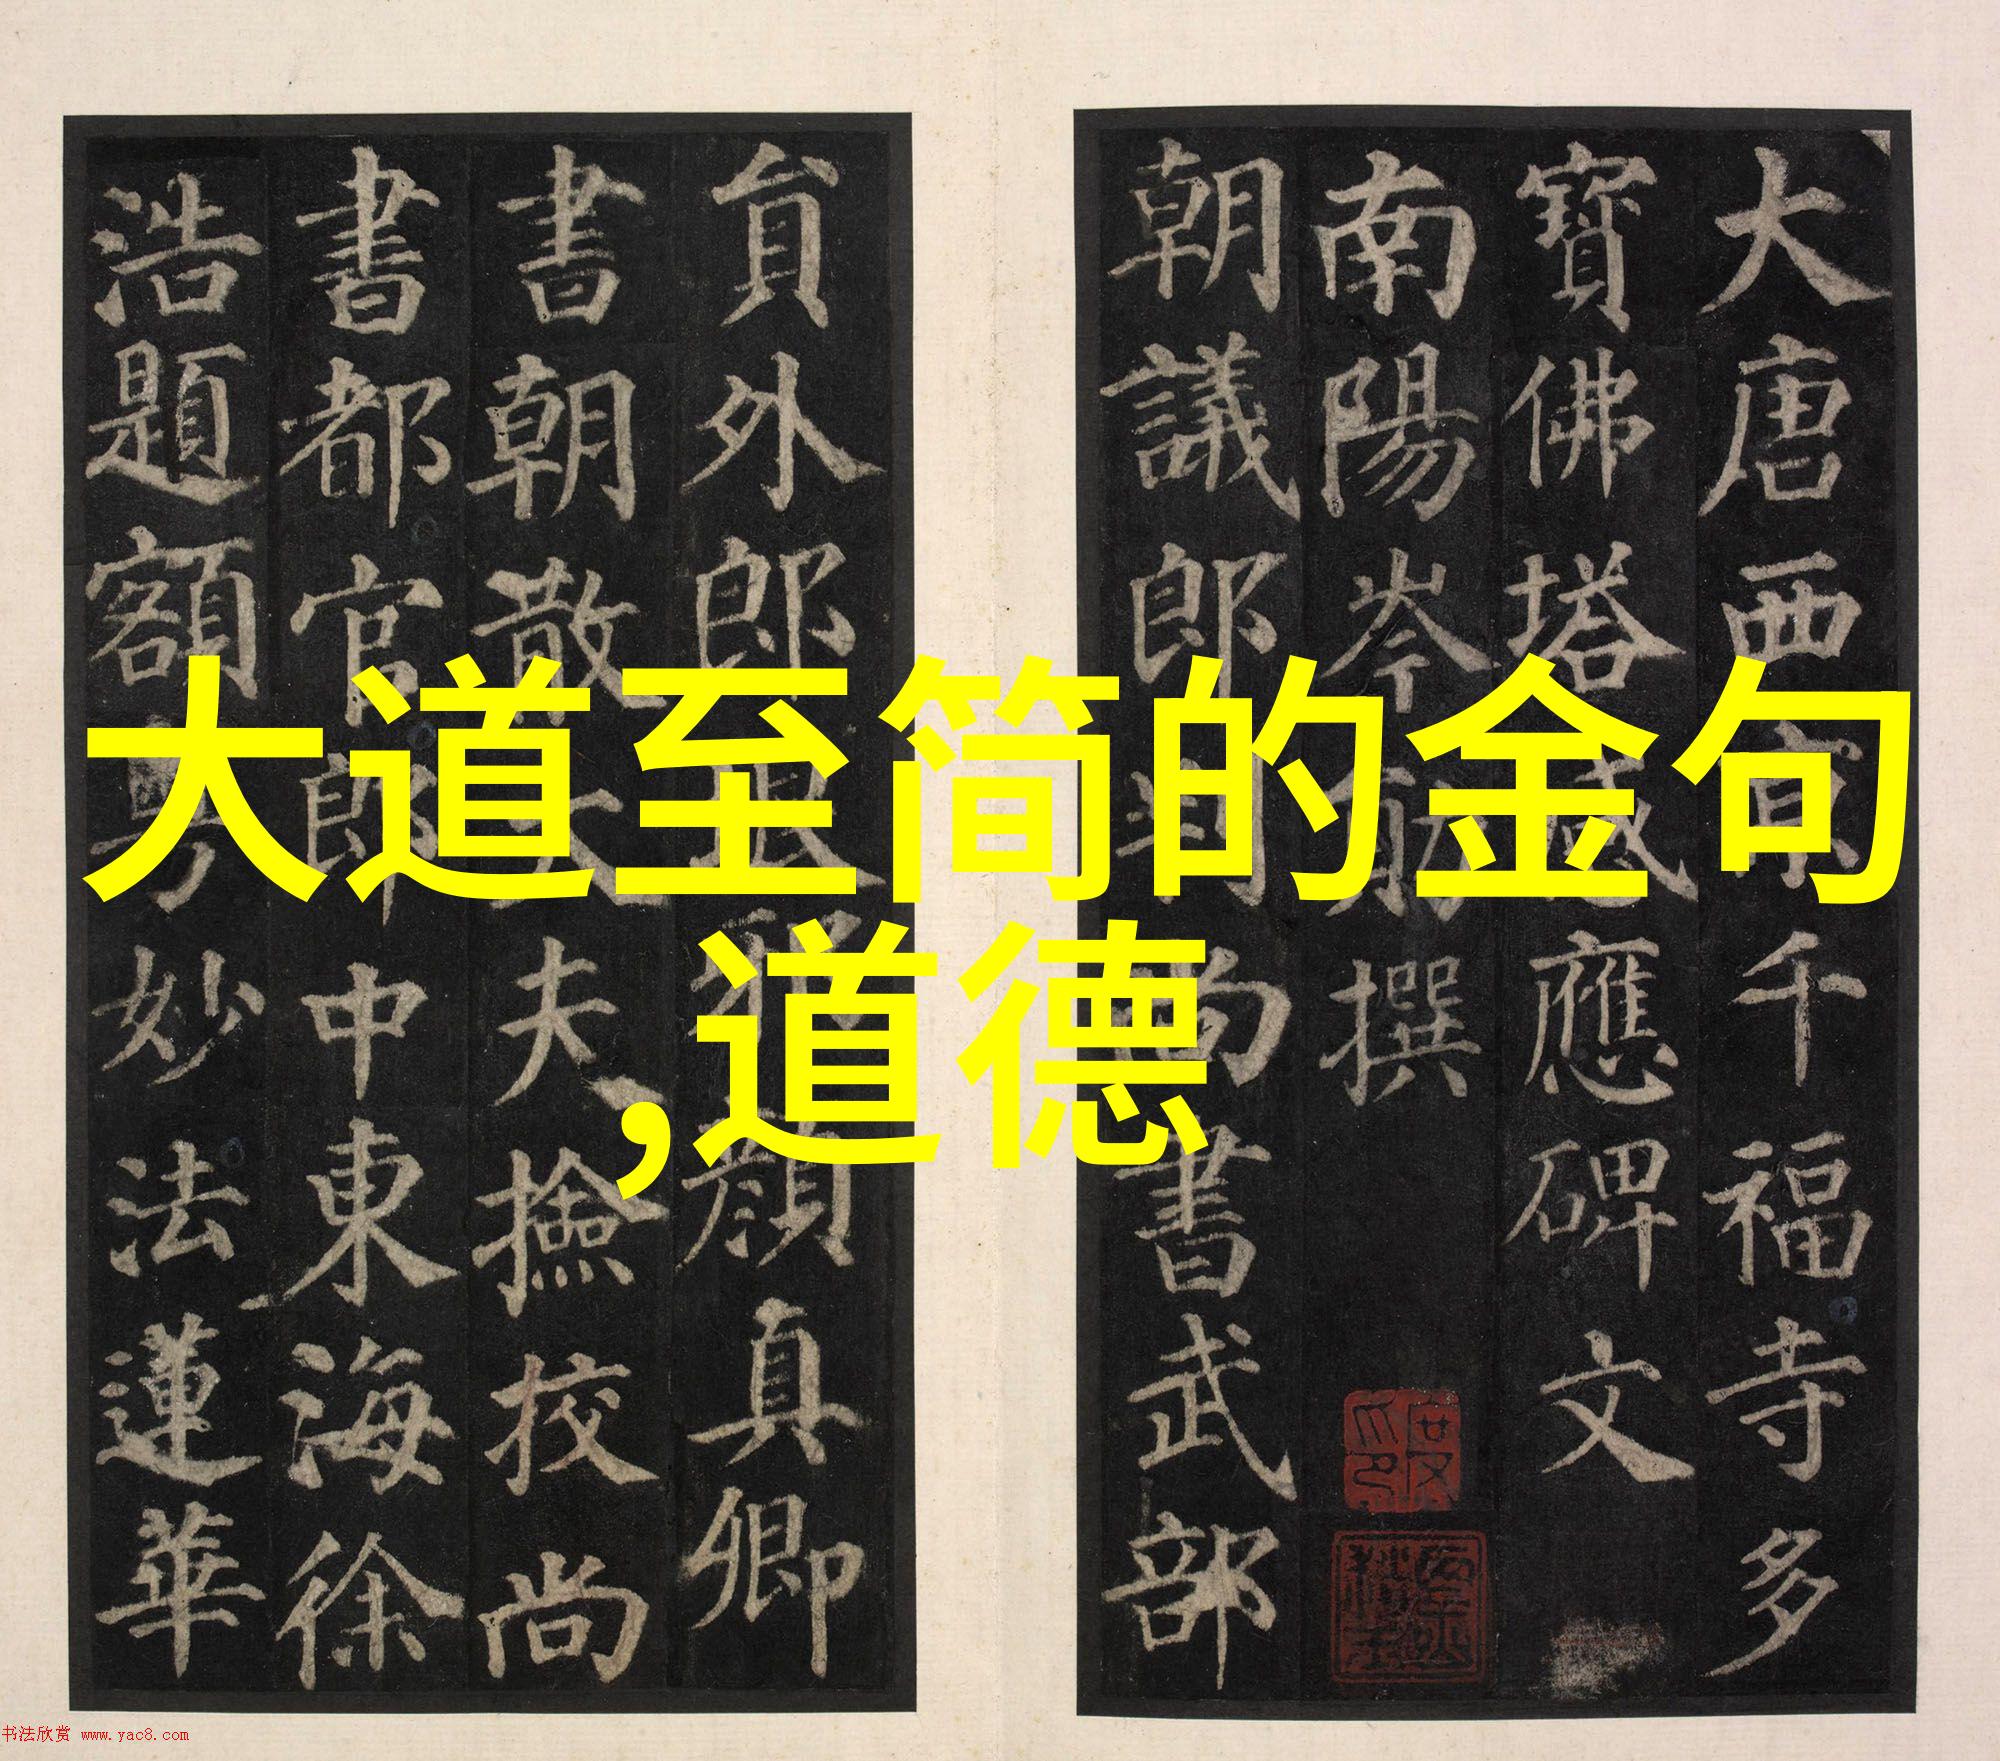 大道至简的金句
,道德
大唐西京千福寺多
寶佛塔感應碑文
南陽岑勛撰
朝議郎判尚書武部
員外郎琅邪顏真卿
書朝散大夫撿校尚
書都官郎中東海徐
浩題額粤妙法蓮華
书法欣赏 www.yac8.com